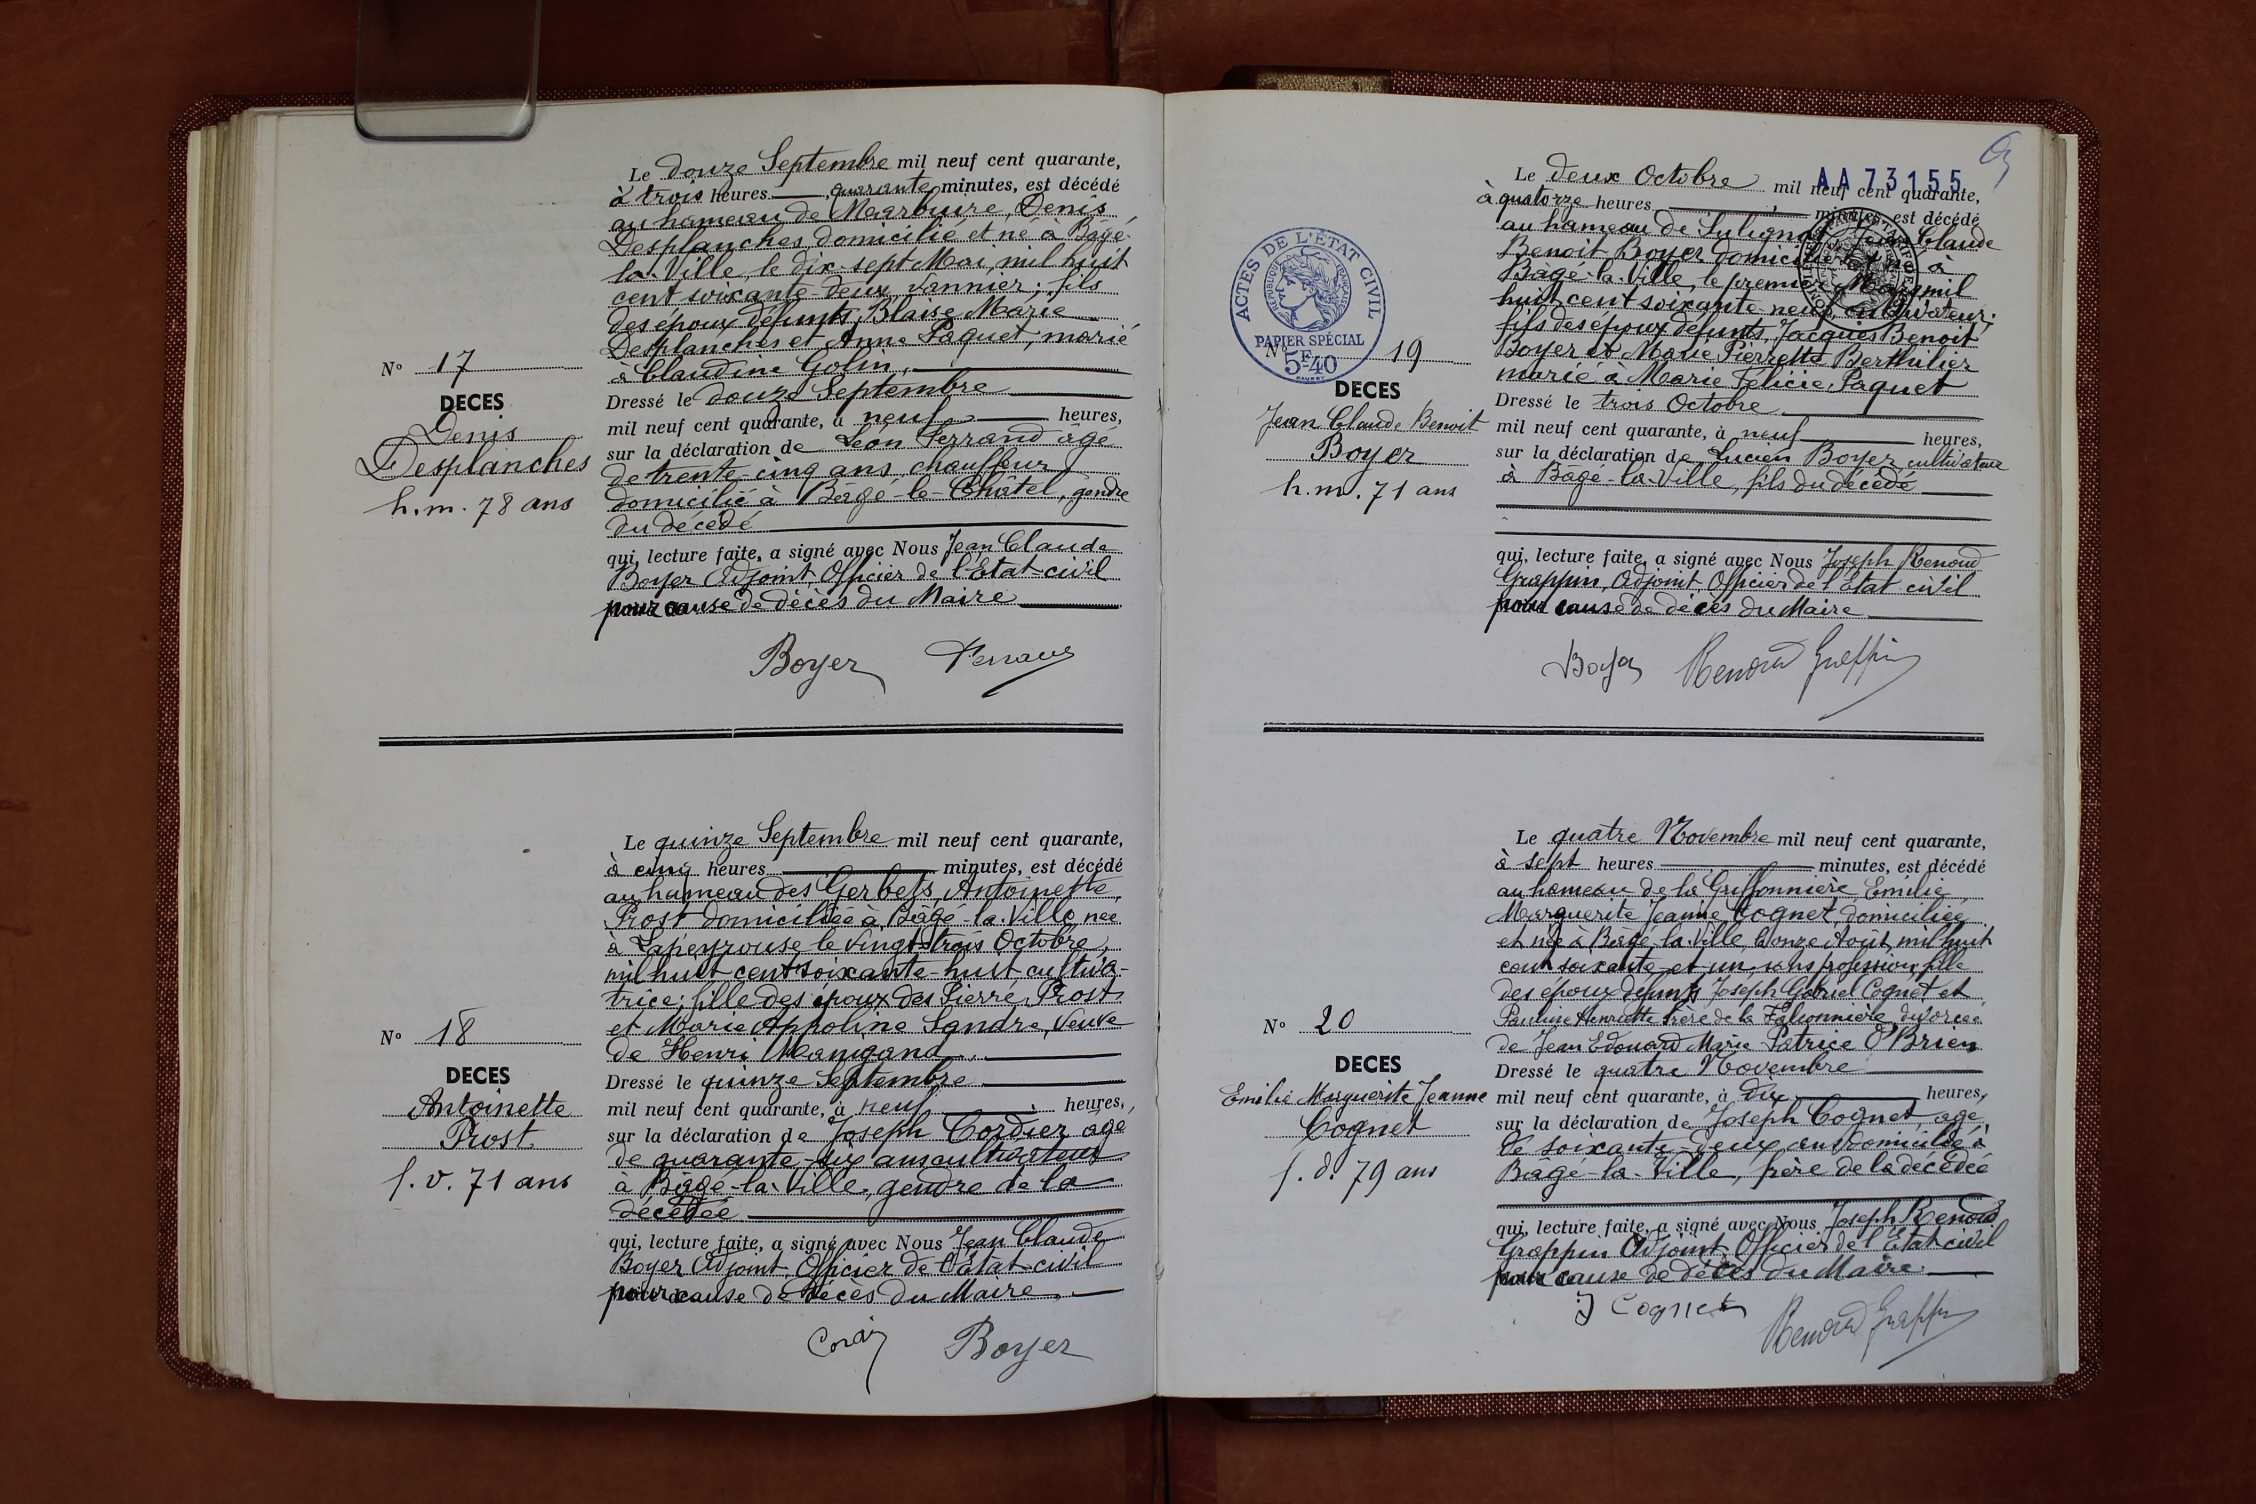 Le douze Septembre mil neuf cent quarante,
à trois heures quarante minutes, est décédé
au hameau de Marbuire, Denis
Desplanches, domicilié et né à Bâgé-
la-Ville le dix-sept Mai, mil huit
cent soixante-deux, vannier; fils
des époux défunts, Blaise Marie
Desplanches et Anne Paquet, marié
à Claudine Golin,
Dressé le douze Septembre
mil neuf cent quarante, à neuf heures,
sur la déclaration de Léon Ferrand âgé
de trente-cinq ans, chauffeur
domicilié à Bâgé-le-Châtel, gendre
du décédé
qui, lecture faite, a signé avec Nous Jean Claude
Boyer Adjoint, Officier de l'Etat-civil
pour cause de décès du Maire
N° 17
DECES
Denis
Desplanches
h. m. 78 ans
Boyer Ferrand
Le quinze Septembre mil neuf cent quarante,
à cinq heures minutes, est décédé
au hameau des Gerbets, Antoinette
Prost domiciliée à Bâgé-la-Ville, née
à Lapeyrouse le vingt-trois Octobre,
mil huit cent soixante-huit cultiva-
trice; fille des époux des Pierre Prost
et Marie Appoline Sandre, veuve
de Henri Manigand,
Dressé le quinze Septembre
mil neuf cent quarante, à neuf heures,
sur la déclaration de Joseph Cordier âgé
de quarante-six ans cultivateur
à Bâgé-la-Ville, gendre de la
décédée
qui, lecture faite, a signé avec Nous Jean Claude
Boyer Adjoint, Officier de l'Etat-civil
pour cause de décès du Maire,
N° 18
DECES
Antoinette
Prost
f. v. 71 ans
Boyer
AA 73155
Le deux Octobre mil neuf cent quarante,
à quatorze heures minutes, est décédé
au hameau de Jean Claude
Benoit Boyer domicilié et né à
Bâgé-la-Ville, le premier mil
huit cent soixante neuf, cultivateur;
fils des époux défunts, Jacques Benoit
Boyer et Marie Pierrette Berthilier
marié à Marie Félicie Paquet
Dressé le trois Octobre
mil neuf cent quarante, à neuf heures,
sur la déclaration de Lucien Boyer, cultivateur
à Bâgé-la-Ville, fils du décédé
qui, lecture faite, a signé avec Nous Joseph Renoud
Grappin, Adjoint, Officier de l'Etat civil
pour cause de décès du Maire
ACTES DE L'ÉTAT CIVIL
RÉPUBLIQUE FRANÇAISE
PAPIER SPÉCIAL
5F40
N° 19
DECES
Jean Claude Benoit
Boyer
h. m. 71 ans
Boyer Renoud Grappin
Le quatre Novembre mil neuf cent quarante,
à sept heures minutes, est décédé
au hameau de la Griffonnière, Emilie
Marguerite Jeanne Cognet, domiciliée
et née à Bâgé-la-Ville, le onze Août, mil huit
cent soixante et un, sans profession, fille
des époux défunts, Joseph Gabriel Cognet et
Pauline Henriette Frère de la Falconnière, divorcée
de Jean Edouard Marie Patrice O'Brien
Dressé le quatre Novembre
mil neuf cent quarante, à dix heures,
sur la déclaration de Joseph Cognet, âgé
de soixante-deux ans domicilié à
Bâgé-la-Ville, frère de la décédée
qui, lecture faite, a signé avec Nous Joseph Renoud
Grappin Adjoint, Officier de l'Etat-civil
pour cause de décès du Maire.
N° 20
DECES
Emilie Marguerite Jeanne
Cognet
f. d. 79 ans
J Cognet Renoud Grappin